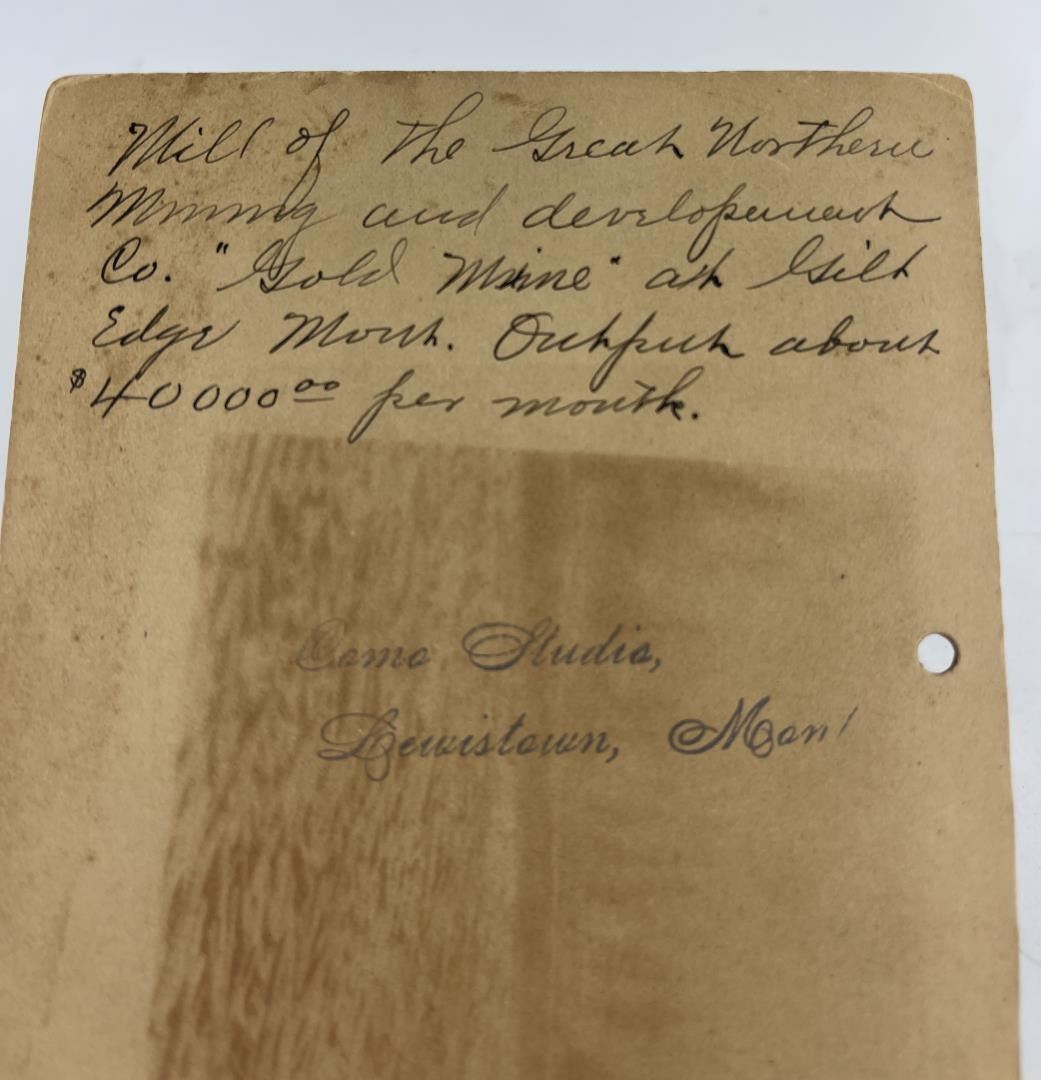 Mill of The Great Northern
Mining and developement
Co. "Gold Mine" at Gilt
Edge Mont. Output about
$40000.00 per month.
Studio,
Lewistown, Mont